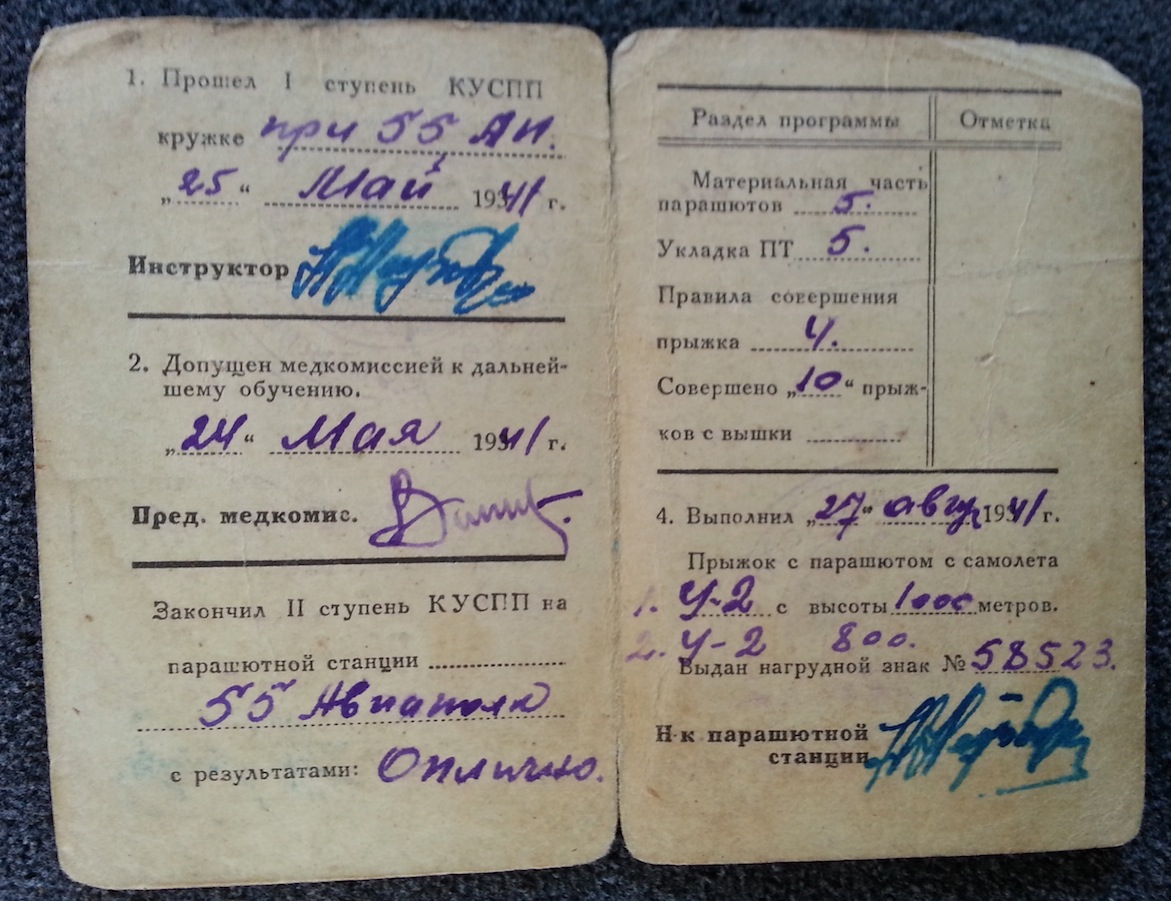 1. Прошел I ступень КУСПП
кружке при 55 АП.
„25“ Май 1941 г.
Инструктор
2. Допущен медкомиссией к дальней-
шему обучению.
„24“ Мая 1941 г.
Пред. медкомис.
Закончил II ступень КУСПП на
парашютной станции
55 Авиаполк
с результатами: Отлично.
Раздел программы Отметка
Материальная часть
парашютов 5.
Укладка ПТ 5.
Правила совершения
прыжка 4.
Совершено „10“ прыж-
ков с вышки
4. Выполнил „27“ авгу 1941 г.
Прыжок с парашютом с самолета
1. У-2 с высоты 1000 метров.
2. У-2 800.
Выдан нагрудной знак № 58523.
Н-к парашютной
станции